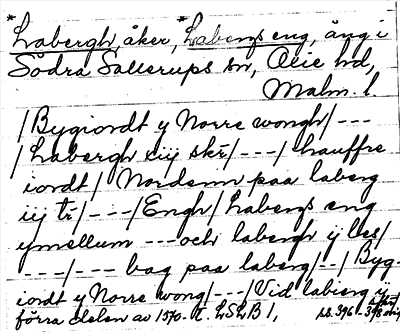 *Labergh, åker, *Labergs eng, äng i
Södra Sallerups sn, Oxie hd,
Malm. l
/Bygiordt y Norre wongh/---
/Labergh xiij skr/---/hauffre
iordt/ Nordenn paa laberg
iij tr/---/Engh/ Labergs eng
ymellum --- och labergh ij les/
---/--- bag paa laberg/--/Byg-
iordt y Norre wong/---/Vid laberg ij
förra delen av 1570-t. LSLB 1, ss. 396-398